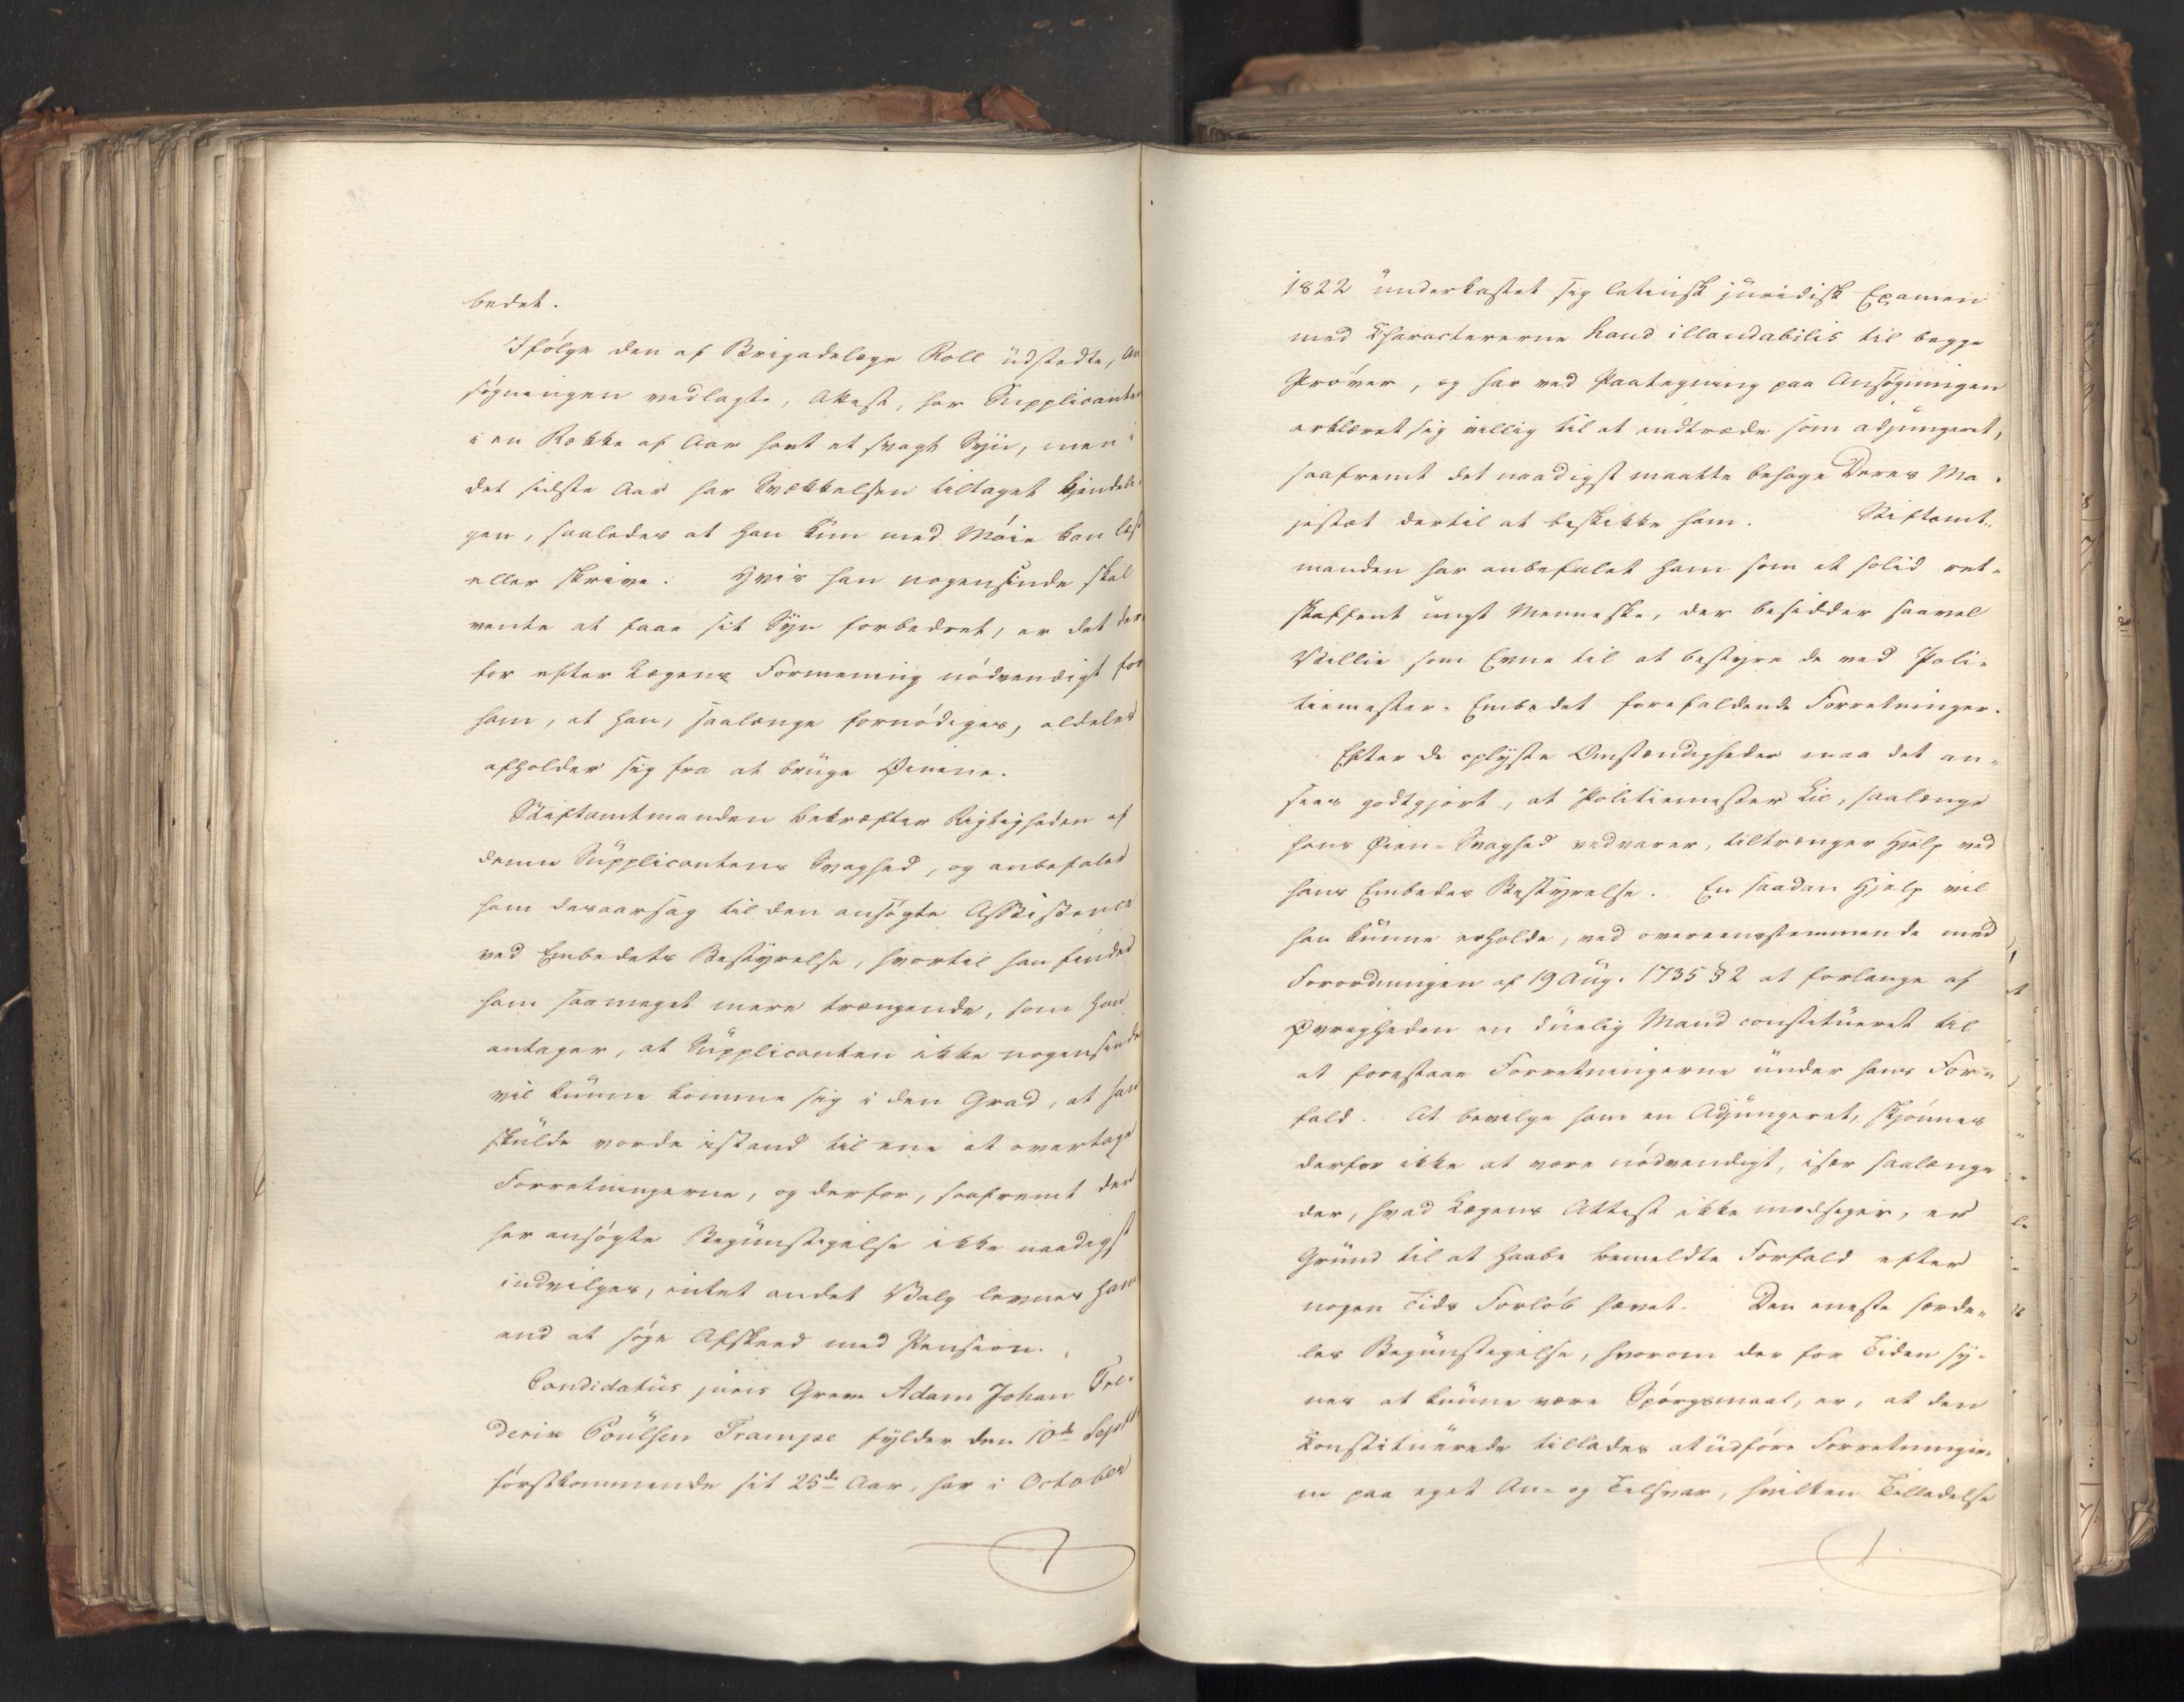 bedet.
Ifölge den af Brigadelæge Roll udstedte, An
søgningen vedlagte, Attest, har Supplicanten
i en Række af Aar havt et svagt Syn, men i
det sidste Aar har Svækkelsen tiltaget kjendeli
gen, saaledes at han kun med Möie kan læse
eller skrive. Hvis han nogensinde skal
vente at faae sit Syn forbedret, er det der
for efter Lægens Formening nödvendigt for
ham, at han, saalænge fornödiges, aldeles
afholder sig fra at bruge Öinene.
Stiftamtmanden bekræfter Rigtigheden af
denne Supplicantens Svaghed, og anbefaler
ham desaarsag til den ansögte Assistence
ved Embedets Bestyrelse, hvortil han finder
ham saameget mere trængende, som han
antager, at Supplicanten ikke nogensinde
vil kunne komme sig i den Grad, at han
skulde vorde istand til ene at overtage
Forretningerne, og derfor, saafremt den
her ansögte Begunstigelse ikke naadigst
indvilges, intet andet Valg levnes ham
end at söge Afskeed med Pension.
Candidatus juris Greve Adam Johan Fre-
derik Poulsen Trampe fylder den 10de Septbr
förstkommende sit 25de Aar, har i October
1822 underkastet sig latinsk juridisk Examen
med Characteererne haud illaudabilis til begge
Pröver, og har ved Paategning paa Ansögningen
erklæret sig villig til at indtræde som adjungeret,
saafremt det naadigst maatte behage Deres Ma-
jestæt dertil at beskikke ham. Stiftamt-
manden har anbefalet ham som et solid ret-
skaffent ungt Menneske, der besidder saavel
Villie som Evne til at bestyre de ved Poli-
tiemester-Embedet forefaldende Forretninger.
Efter de oplyste Omstændigheder maa det an-
sees godtgjort, at Politiemester Lie, saalænge
hans Öien-Svaghed vedvarer, tiltrænger Hjelp ved
hans Embedes Bestyrelse. En saadan Hjelp vil
han kunne erholde, ved overeensstemmende med
Forordningen af 19 Aug. 1735 § 2 at forlange af
Övrigheden en duelig Mand constitueret til
at forestaae Forretningerne under hans For-
fald. At bevilge ham en Adjungeret, skjönnes
derfor ikke at være nödvendigt, især saalænge
der, hvad Lægens Attest ikke modsiger, er
Grund til at haabe bemeldte Forfald efter
nogen Tids Forlöb hævet. Den eneste særde-
les Begunstigelse, hvorom der for Tiden sy-
nes at kunne være Spörgsmaal, er, at den
Konstituerede tillades at udföre Forretninger-
ne paa eget An- og Tilsvar, hvilken Tilladelse